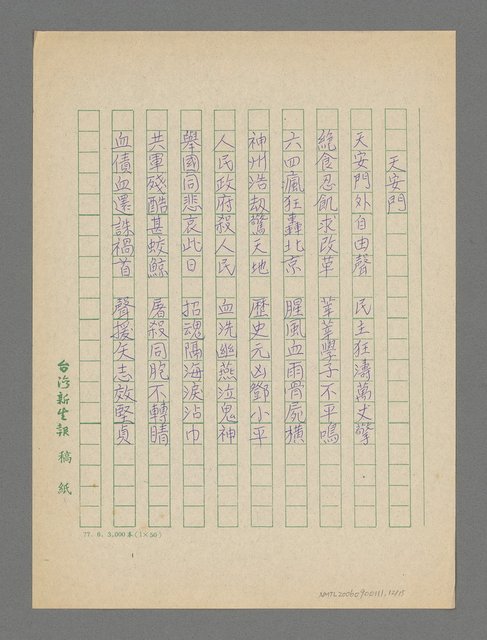 天安門
天安門外自由聲　民主狂濤萬丈擎
絕食忍飢求改革　莘莘學子不平鳴
六四瘋狂轟北京　腥風血雨骨屍橫
神州浩劫驚天地　歷史元凶鄧小平
人民政府殺人民　血洗幽燕泣鬼神
舉國同悲哀此日　招魂隔海淚沾巾
共軍殘酷甚蛟鯨　屠殺同胞不轉睛
血債血還誅禍首　聲援矢志效堅貞
台灣新生報 稿紙
77. 8. 3,000本(1×50)
NMTL20060900111, 12/15